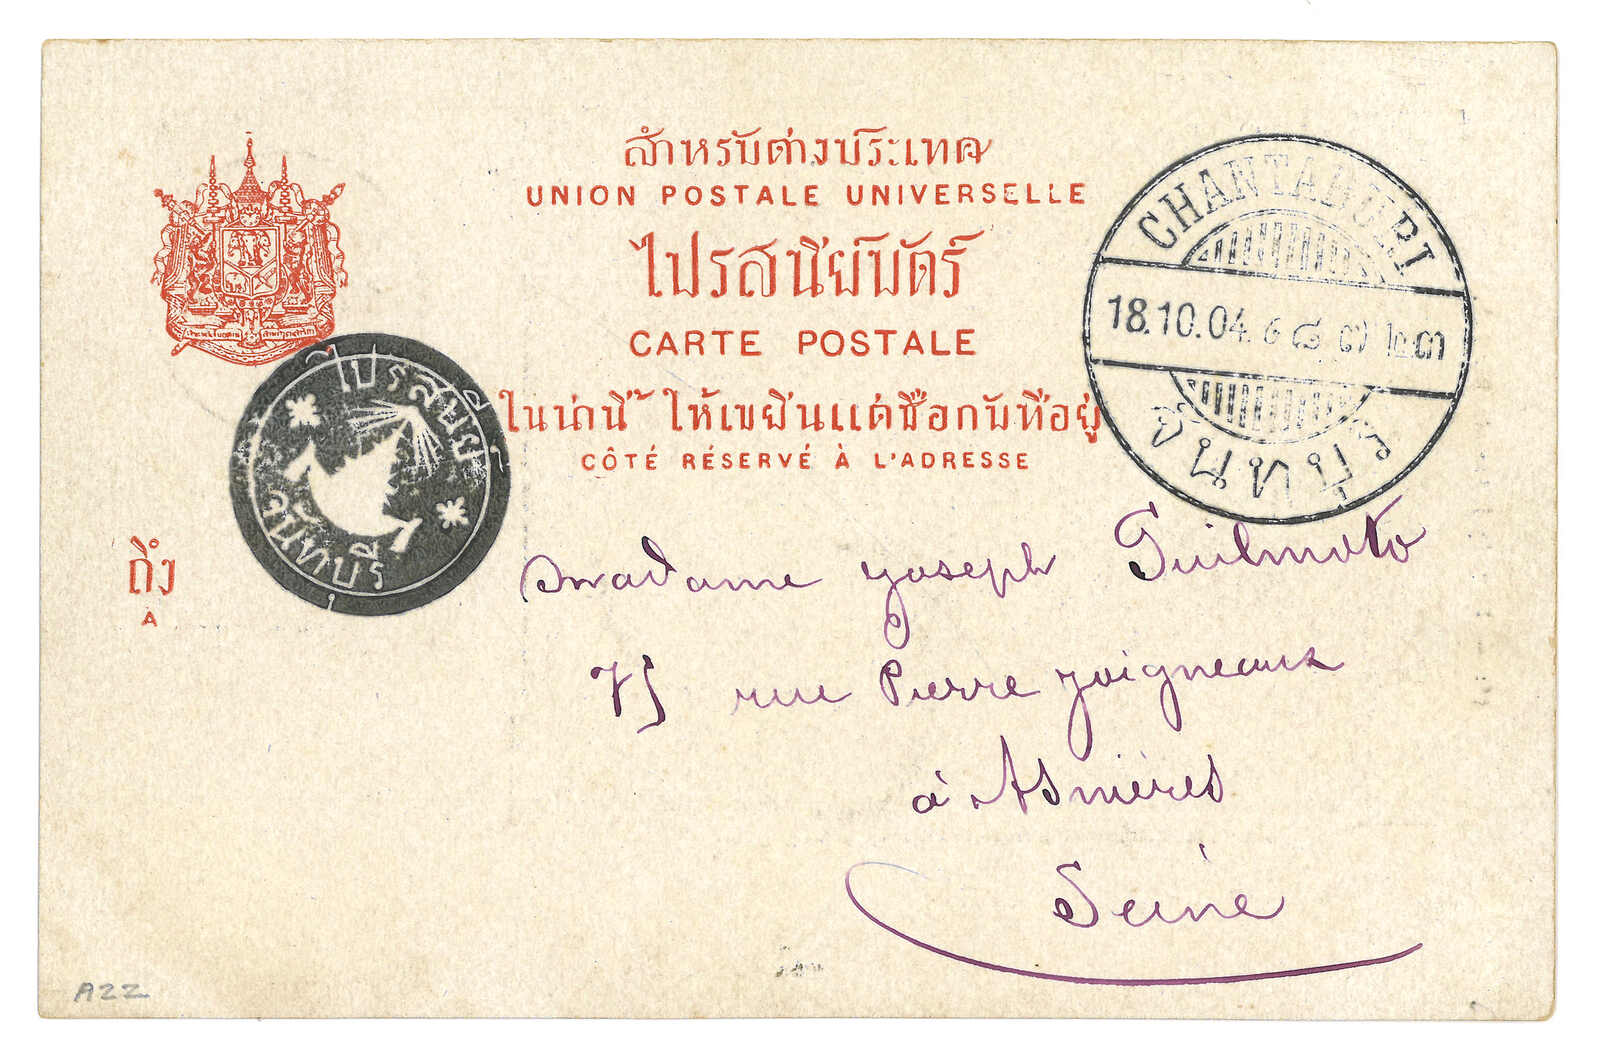 สำหรับต่างประเทศ
UNION POSTALE UNIVERSELLE
ไปรสนีย์บัตร์
CARTE POSTALE
ในน่านี้ ให้เขียนแต่ชื่อกับที่อยู่
CÔTÉ RÉSERVÉ À L'ADRESSE
CHANTABURI
18.10.04.
จันทบุรี
ไปรสนีย์
จันทบุรี
ถึง
A
Madame Joseph Guilmoto
75 rue Pierre Joigneaux
à Asnières
Seine
A22